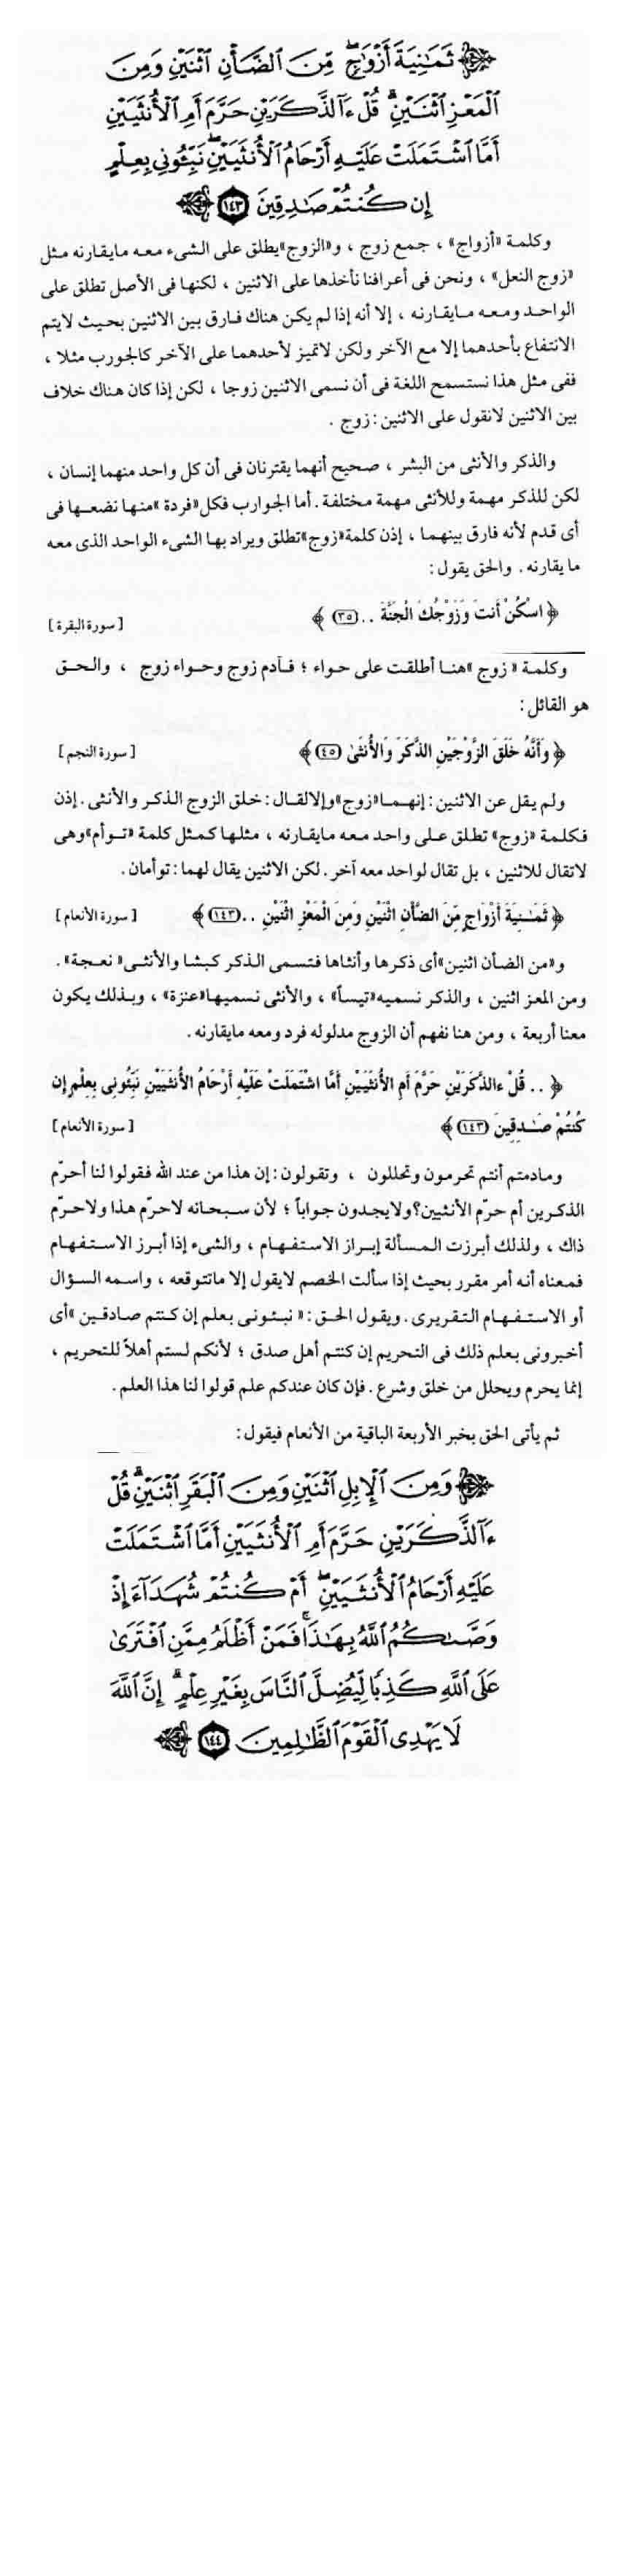 ثَمَٰنِيَةَ أَزْوَٰجٍ ۖ مِّنَ ٱلضَّأْنِ ٱثْنَيْنِ وَمِنَ
ٱلْمَعْزِ ٱثْنَيْنِ ۗ قُلْ ءَآلذَّكَرَيْنِ حَرَّمَ أَمِ ٱلْأُنثَيَيْنِ
أَمَّا ٱشْتَمَلَتْ عَلَيْهِ أَرْحَامُ ٱلْأُنثَيَيْنِ ۖ نَبِّـُٔونِى بِعِلْمٍ
إِن كُنتُمْ صَٰدِقِينَ ١٤٣
وكلمة «أزواج» ، جمع زوج ، و«الزوج»يطلق على الشىء معه مايقارنه مثل
«زوج النعل» ، ونحن فى أعرافنا نأخذها على الاثنين ، لكنها فى الأصل تطلق على
الواحد ومعه مايقارنه ، إلا أنه إذا لم يكن هناك فارق بين الاثنين بحيث لايتم
الانتفاع بأحدهما إلا مع الآخر ولكن لاتميز لأحدهما على الآخر كالجورب مثلا ،
ففى مثل هذا نستسمح اللغة فى أن نسمى الاثنين زوجا ، لكن إذا كان هناك خلاف
بين الاثنين لانقول على الاثنين : زوج .
والذكر والأنثى من البشر ، صحيح أنهما يقترنان فى أن كل واحد منهما إنسان ،
لكن للذكر مهمة وللأنثى مهمة مختلفة . أما الجوارب فكل«فردة »منها نضعها فى
أى قدم لأنه فارق بينهما ، إذن كلمة«زوج»تطلق ويراد بها الشىء الواحد الذى معه
ما يقارنه . والحق يقول :
﴿ اسْكُنْ أَنتَ وَزَوْجُكَ الْجَنَّةَ .. (٣٥) ﴾ [ سورة البقرة ]
وكلمة « زوج »هنا أطلقت على حواء ؛ فآدم زوج وحواء زوج ، والحق
هو القائل :
﴿ وَأَنَّهُ خَلَقَ الزَّوْجَيْنِ الذَّكَرَ وَالأُنثَىٰ (٤٥) ﴾ [ سورة النجم ]
ولم يقل عن الاثنين : إنهما«زوج»وإلالقال : خلق الزوج الذكر والأنثى . إذن
فكلمة «زوج» تطلق على واحد معه مايقارنه ، مثلها كمثل كلمة «توأم»وهى
لاتقال للاثنين ، بل تقال لواحد معه آخر . لكن الاثنين يقال لهما : توأمان .
﴿ ثَمَـٰنِيَةَ أَزْوَاجٍ مِّنَ الضَّأْنِ اثْنَيْنِ وَمِنَ الْمَعْزِ اثْنَيْنِ .. (١٤٣) ﴾ [ سورة الأنعام ]
و«من الضأن اثنين»أى ذكرها وأنثاها فتسمى الذكر كبشا والأنثى« نعجة» .
ومن المعز اثنين ، والذكر نسميه«تيساً» ، والأنثى نسميها«عنزة» ، وبذلك يكون
معنا أربعة ، ومن هنا نفهم أن الزوج مدلوله فرد ومعه مايقارنه .
﴿ .. قُلْ ءالذَّكَرَيْنِ حَرَّمَ أَمِ الأُنثَيَيْنِ أَمَّا اشْتَمَلَتْ عَلَيْهِ أَرْحَامُ الأُنثَيَيْنِ نَبِّئُونِى بِعِلْمٍ إِن
كُنتُمْ صَـٰدِقِينَ (١٤٣) ﴾ [ سورة الأنعام ]
ومادمتم أنتم تحرمون وتحللون ، وتقولون : إن هذا من عند الله فقولوا لنا أحرّم
الذكرين أم حرّم الأنثيين؟ولايجدون جواباً ؛ لأن سبحانه لاحرّم هذا ولاحرّم
ذاك ، ولذلك أبرزت المسألة إبراز الاستفهام ، والشىء إذا أبرز الاستفهام
فمعناه أنه أمر مقرر بحيث إذا سألت الخصم لايقول إلا ماتتوقعه ، واسمه السؤال
أو الاستفهام التقريرى . ويقول الحق : « نبئونى بعلم إن كنتم صادقين »أى
أخبرونى بعلم ذلك فى التحريم إن كنتم أهل صدق ؛ لأنكم لستم أهلاً للتحريم ،
إنما يحرم ويحلل من خلق وشرع . فإن كان عندكم علم قولوا لنا هذا العلم .
ثم يأتى الحق بخبر الأربعة الباقية من الأنعام فيقول :
وَمِنَ ٱلْإِبِلِ ٱثْنَيْنِ وَمِنَ ٱلْبَقَرِ ٱثْنَيْنِ ۗ قُلْ
ءَآلذَّكَرَيْنِ حَرَّمَ أَمِ ٱلْأُنثَيَيْنِ أَمَّا ٱشْتَمَلَتْ
عَلَيْهِ أَرْحَامُ ٱلْأُنثَيَيْنِ ۖ أَمْ كُنتُمْ شُهَدَآءَ إِذْ
وَصَّىٰكُمُ ٱللَّهُ بِهَٰذَا ۚ فَمَنْ أَظْلَمُ مِمَّنِ ٱفْتَرَىٰ
عَلَى ٱللَّهِ كَذِبًا لِّيُضِلَّ ٱلنَّاسَ بِغَيْرِ عِلْمٍ ۗ إِنَّ ٱللَّهَ
لَا يَهْدِى ٱلْقَوْمَ ٱلظَّٰلِمِينَ ١٤٤